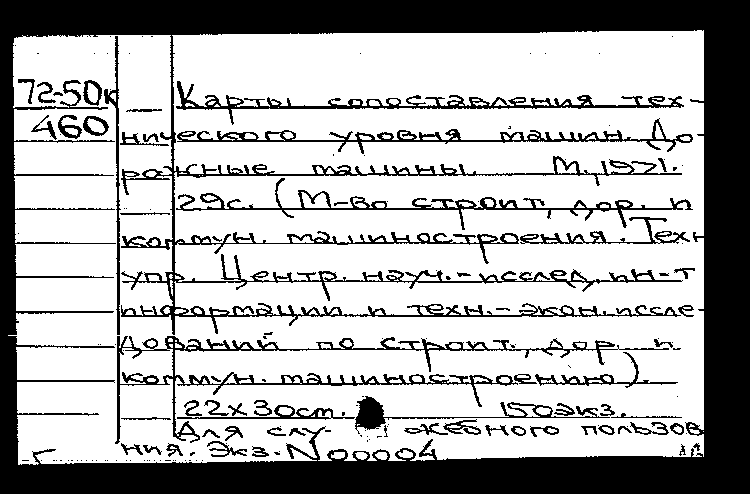 72-50к Карты сопоставления тех-
460 нического уровня машин. До-
рожные машины. М., 1971.
29с. (М-во строит., дор. и
коммун. машиностроения. Техн
упр. Центр. науч.-исслед. ин-т
информации и техн.-экон. иссле-
дований по строит., дор. и
коммун. машиностроению).
22х30см. 150экз.
Для слу- жебного пользов
ния. Экз. N00004